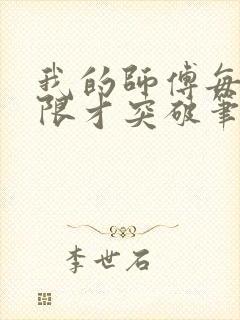 我的師傅每
限才突破筆
李世石